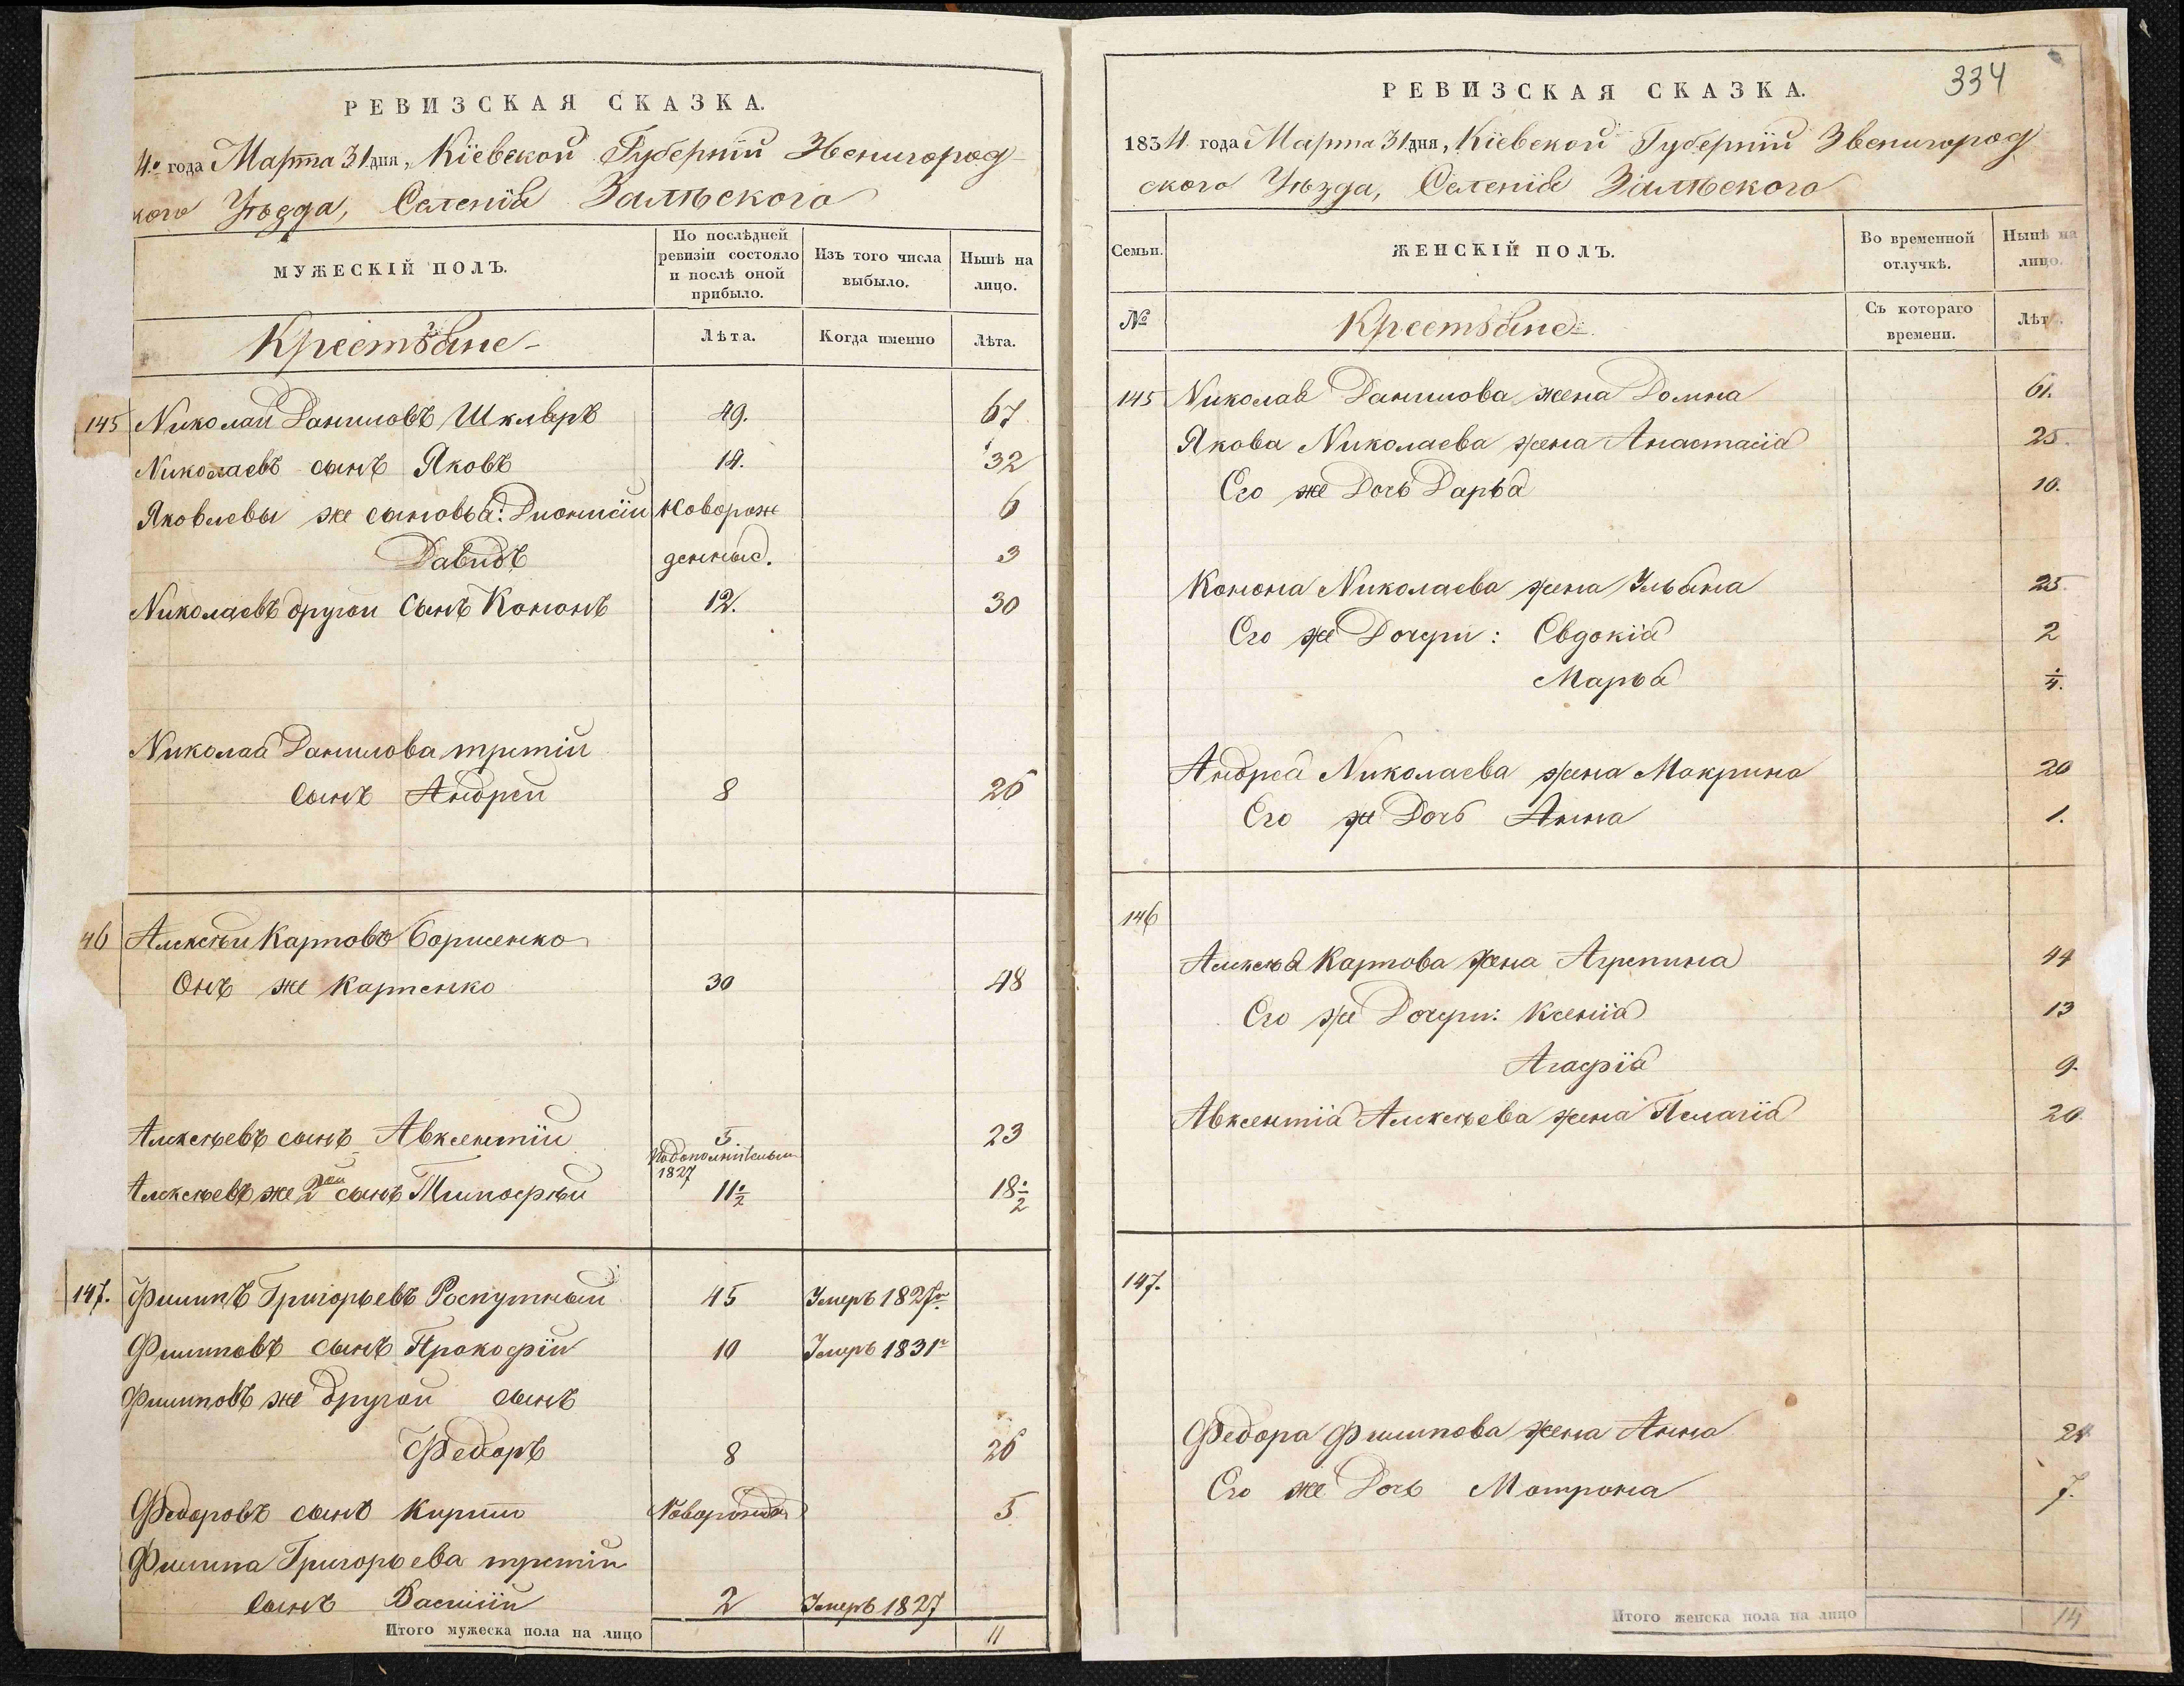 РЕВИЗСКАЯ СКАЗКА.
4.го года Марта 31 дня, Кіевской Губерніи Звенигород
кого Уѣзда, Селенія Залѣского
МУЖЕСКІЙ ПОЛЪ.
По послѣдней ревизіи состояло и послѣ оной прибыло.
Изъ того числа выбыло.
Нынѣ на лицо.
Крестьяне
Лѣта.
Когда именно
Лѣта.
145 Николай Даниловъ Шкляръ 49. 67
Николаевъ сынъ Яковъ 14. 32
Яковлевы же сыновья: Дионисій Новорож 6
Давидъ денные. 3
Николаевъ другой Сынъ Кононъ 12. 30
Николая Данилова третій
Сынъ Андрей 8 26
46 Алексѣй Карповъ Борисенко
Онъ же Карпенко 30 48
Алексѣевъ сынъ Авксентій 5 23
Подополнительн
1827
Алексѣевъ же 2ой сынъ Тимофѣй 11½ 18½
147. Филипъ Григорьевъ Роспутный 45 Умеръ 1827го
Филиповъ сынъ Прокофій 10 Умеръ 1831г
Филиповъ же другой сынъ
Федоръ 8 26
Федоровъ сынъ Кирилъ Новорожден 5
Филипа Григорьева третій
Сынъ Василій 2 Умеръ 1827
Итого мужеска пола на лицо 11
334
РЕВИЗСКАЯ СКАЗКА.
1834 года Марта 31 дня, Кіевской Губерніи Звенигород
ского Уѣзда, Селенія Залѣского
Семьи.
ЖЕНСКІЙ ПОЛЪ.
Во временной отлучкѣ.
Нынѣ на лицо.
№
Крестьяне
Съ котораго времени.
Лѣт
145 Николая Данилова жена Домна 61.
Якова Николаева жена Анастасія 25.
Его же Дочь Дарья 10.
Конона Николаева жена Ульяна 25.
Его же Дочери: Евдокія 2
Марья ¼.
Андрея Николаева жена Макрина 20
Его же Дочь Анна 1.
146
Алексѣя Карпова жена Агрепина 44
Его же Дочери: Ксенія 13
Агафія 9.
Авксентія Алексѣева жена Пелагія 20
147.
Федора Филипова жена Анна 24
Его же Дочь Матрона 7.
Итого женска пола на лицо 14